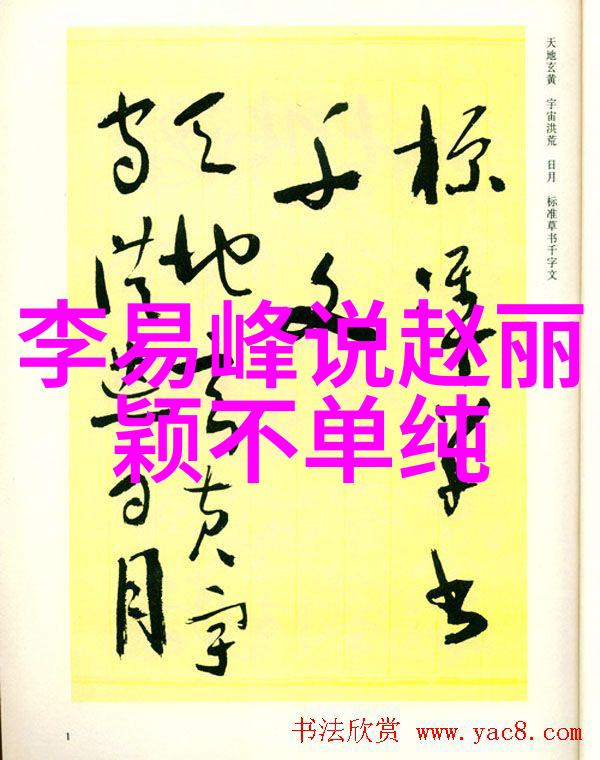 天地玄黄 宇宙洪荒 日月 标准草书千字文
标准草书
千文
天地玄黄宇
宙洪荒日月
李易峰说赵丽
颖不单纯
1
书法欣赏 www.yac8.com